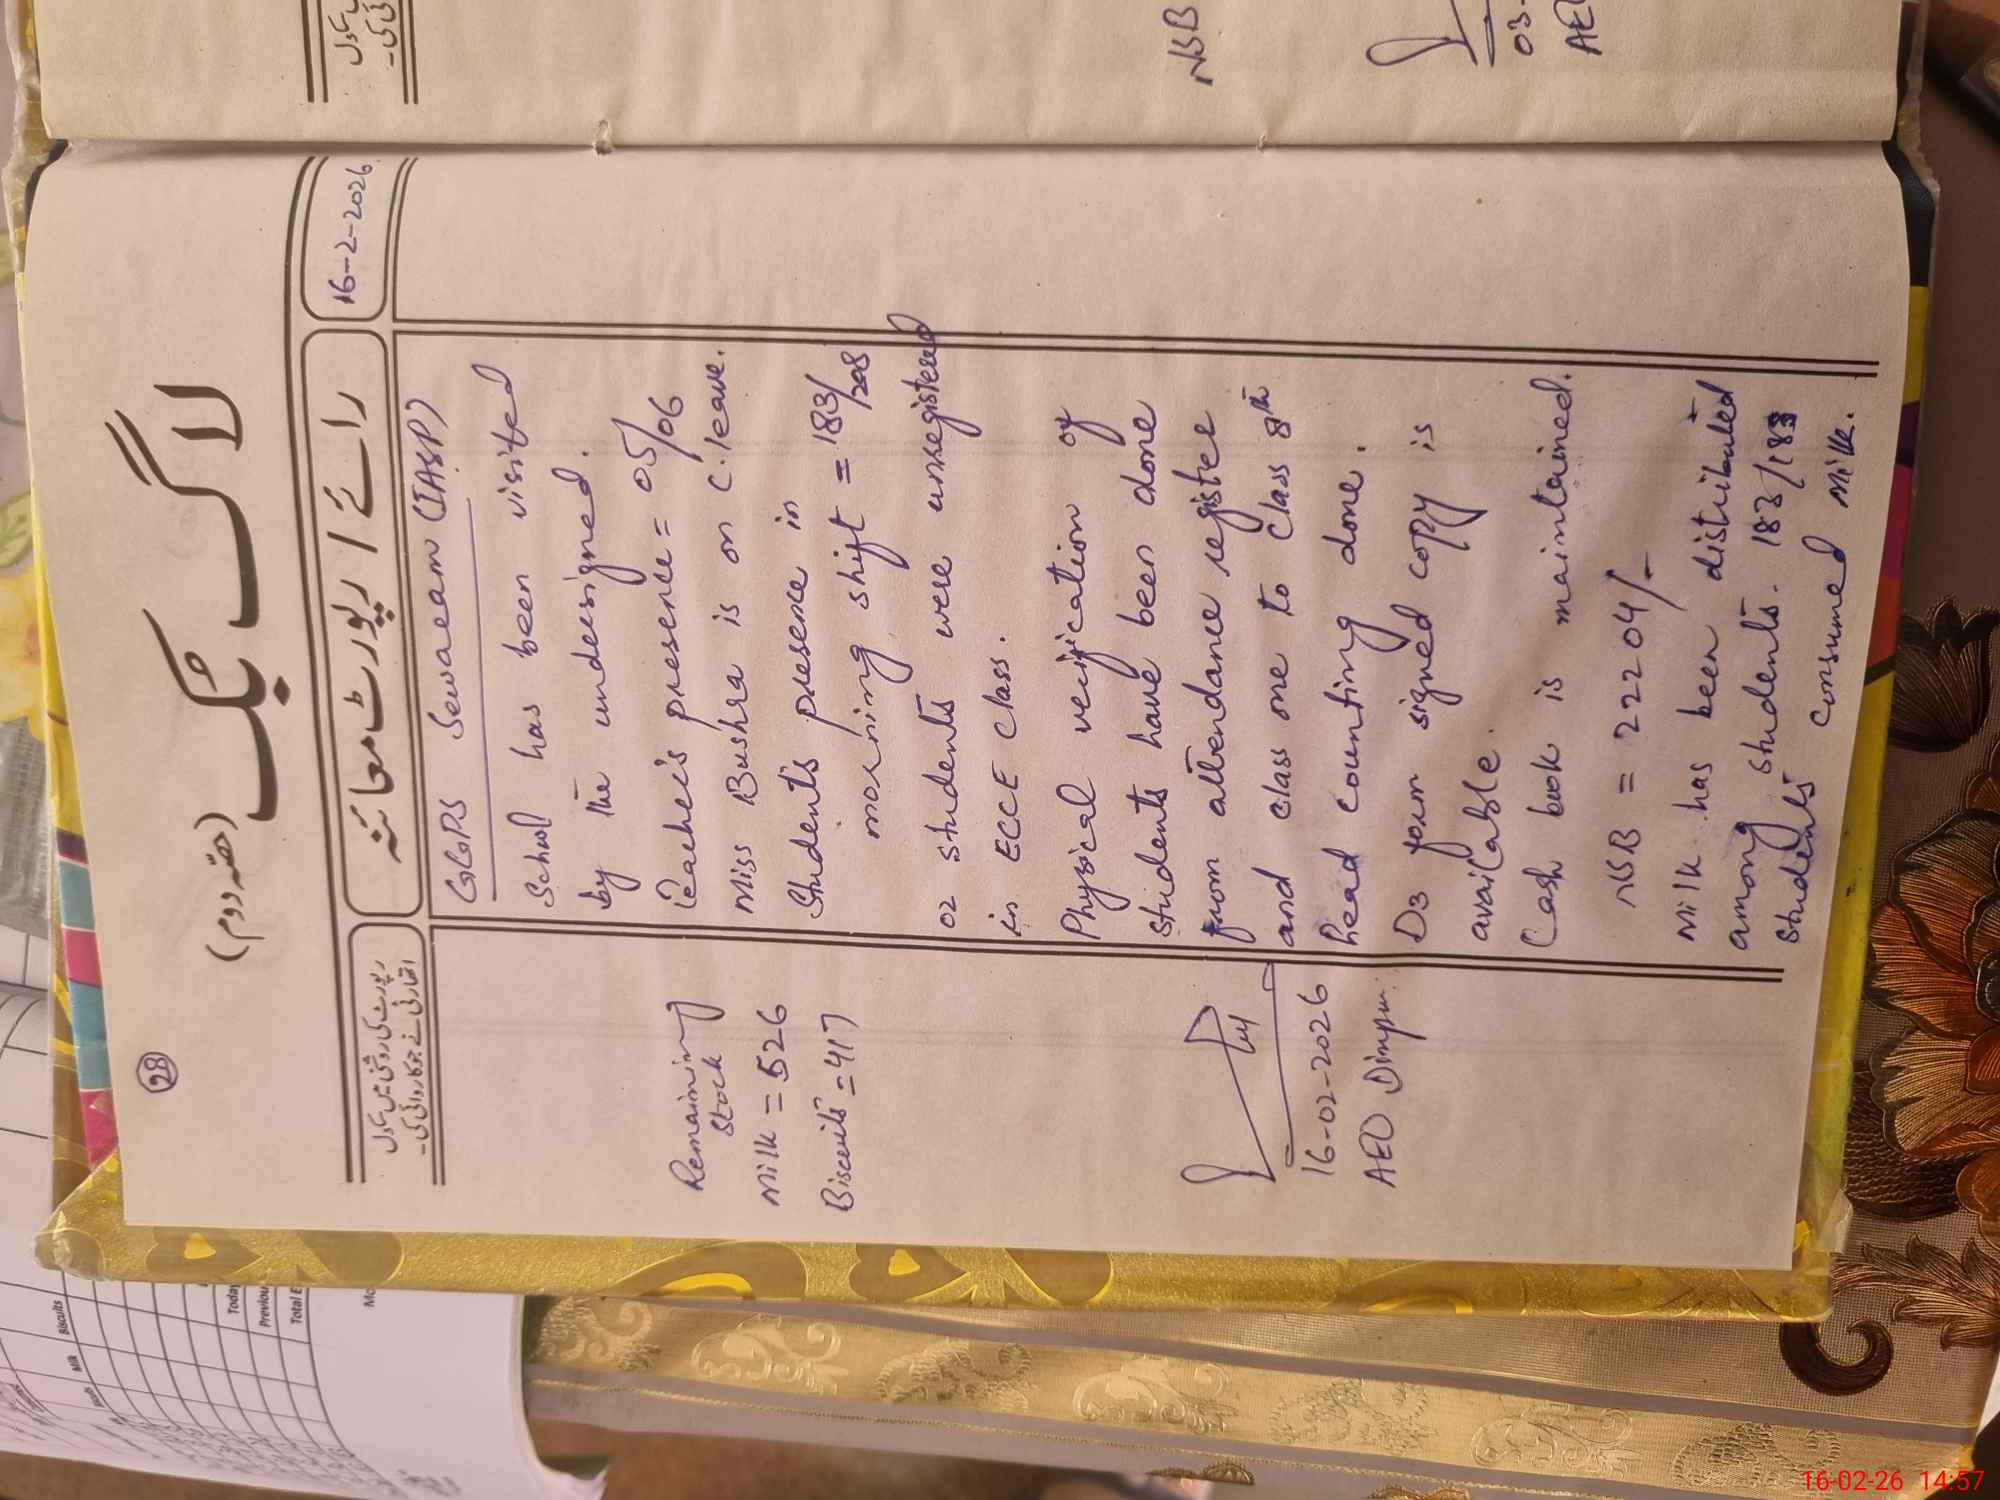 28
لاگ بک
(حصّہ دوم)
16-2-2026
رائے / رپورٹ معائنہ
رپورٹ کی روشنی میں مادل
اتھارٹی نے جو کاروائی کی۔
GGPS Sewaeam (IASP)
School has been visited
by the undersigned.
Teacher's presence = 05/06
Miss Bushra is on C.leave.
Student's presence in
morning shift = 183/208
02 students were unregistered
in ECCE class.
Physical verification of
students have been done
from attendance registre
and class one to class 8th
head counting done.
D3 form signed copy is
available.
Cash book is maintained.
NSB = 22204/-
Milk has been distributed
among students. 183/183
students consumed milk.
Remaining
Stock
Milk = 526
Biscuits = 417
16-02-2026
AEO
NSB
03-
AEO
Biscuits
Milk
Today
Previou
Total E
Mo
16-02-26 14:57